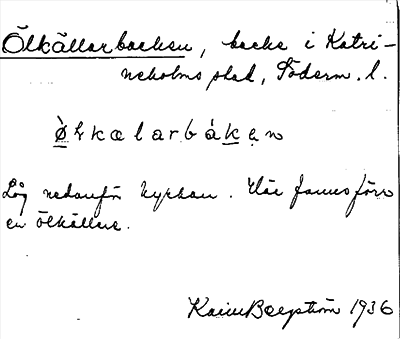 Ölkällarbacken, backe i Katri-
neholms stad, Söderm. l.
ø̲lkælarbàk̲ẹn
Låg nedanför kyrkan. Där fanns förr
en ölkällare.
Karin Bergström 1936